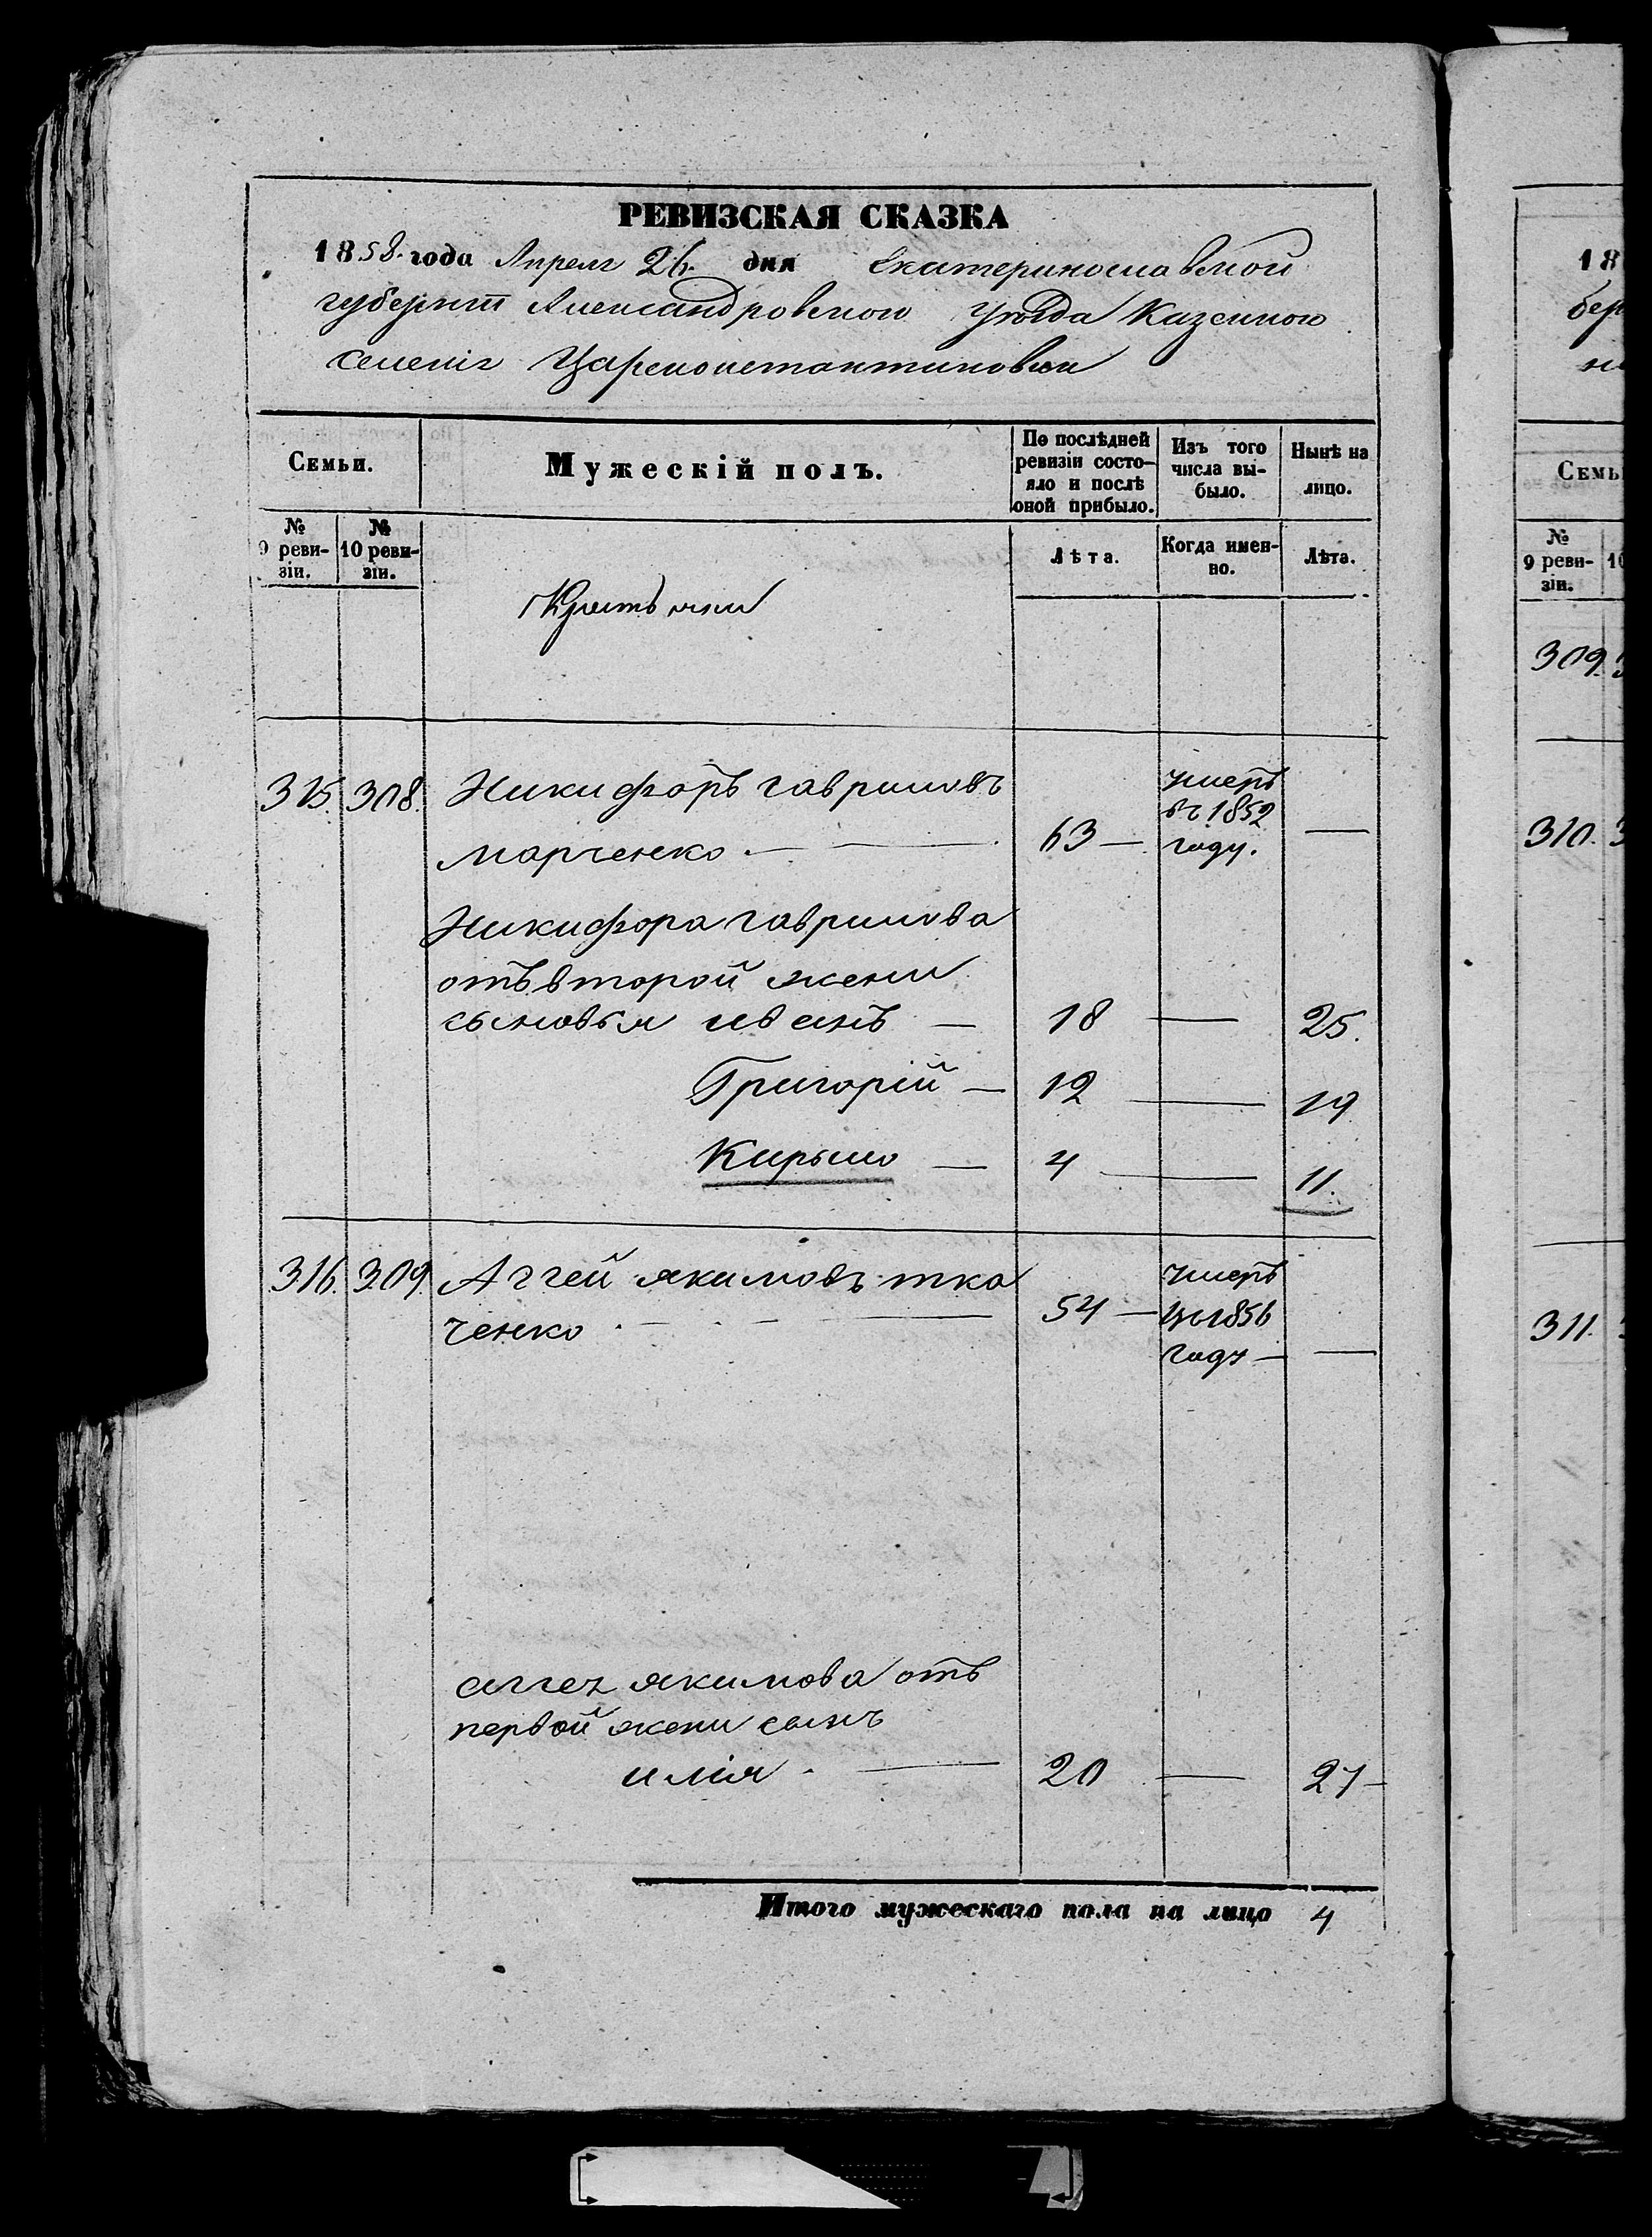 РЕВИЗСКАЯ СКАЗКА
1858. года Апреля 26. дня Екатеринославской
губернiи Александровского уѣзда Казенного
селенiя Цареконстантиновки
Семьи.
Мужескій полъ.
По послѣдней ревизіи состо-
яло и послѣ
оной прибыло.
Изъ того
числа вы-
было.
Нынѣ на
лицо.
№
9 реви-
зіи.
№
10 реви-
зіи.
Лѣта.
Когда имен-
но.
Лѣта.
315. 308. Никифоръ гавриловъ
марченко 63 умеръ въ 1852 году.
Никифора гаврилова
отъ второй жени
сыновья иванъ 18 25.
Григорій 12 19
Кирыло 4 11.
316. 309. Аггей якимовъ тка
ченко 54 умеръ въ 1856 году
аггея якимова отъ
первой жени сынъ
илія 20 27
Итого мужескаго пола на лицо 4
18
бер
Семь
№
9 реви-
зіи.
10
309.
310.
311.